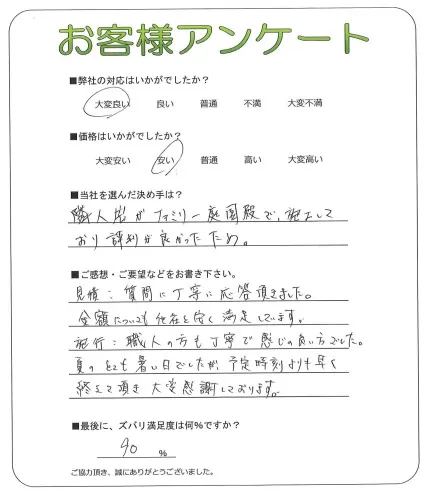 お客様アンケート
■弊社の対応はいかがでしたか?
大変良い 良い 普通 不満 大変不満
■価格はいかがでしたか?
大変安い 安い 普通 高い 大変高い
■当社を選んだ決め手は?
職人岩がファミリー庭園殿で、施工して
おり評判が良かったため。
■ご感想・ご要望などをお書き下さい。
見積:質問に丁寧に応答頂きました。
金額についても他社より安く満足しています。
施行:職人の方も丁寧で感じの良い方でした。
夏のとても暑い日でしたが、予定時刻よりも早く
終えて頂き大変感謝しております。
■最後に、ズバリ満足度は何%ですか?
90 %
ご協力頂き、誠にありがとうございました。